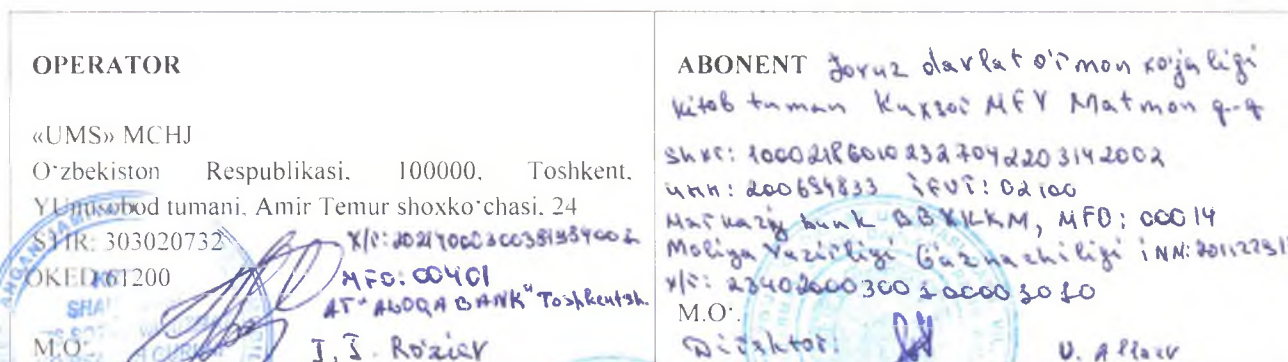 OPERATOR
«UMS» MCHJ
O'zbekiston Respublikasi, 100000, Toshkent,
YUnusobod tumani, Amir Temur shoxko'chasi, 24
STIR: 303020732
OKED 61200
MFO: 00401
AT "ALOQA BANK" Toshkent sh.
M.O'.
I. I. Ro'ziev
ABONENT Jovuz davlat o'rmon xo'jaligi
Kitob tuman MFY Matmon q-q
ShXR: 100021860102327042203142002
INN: 200654833 IFUT: 02100
Markaziy bank BBXKKM, MFO: 00014
Moliya Vazirligi G'aznachiligi INN:
X/R: 23402000300100001010
M.O'.
Direktor: